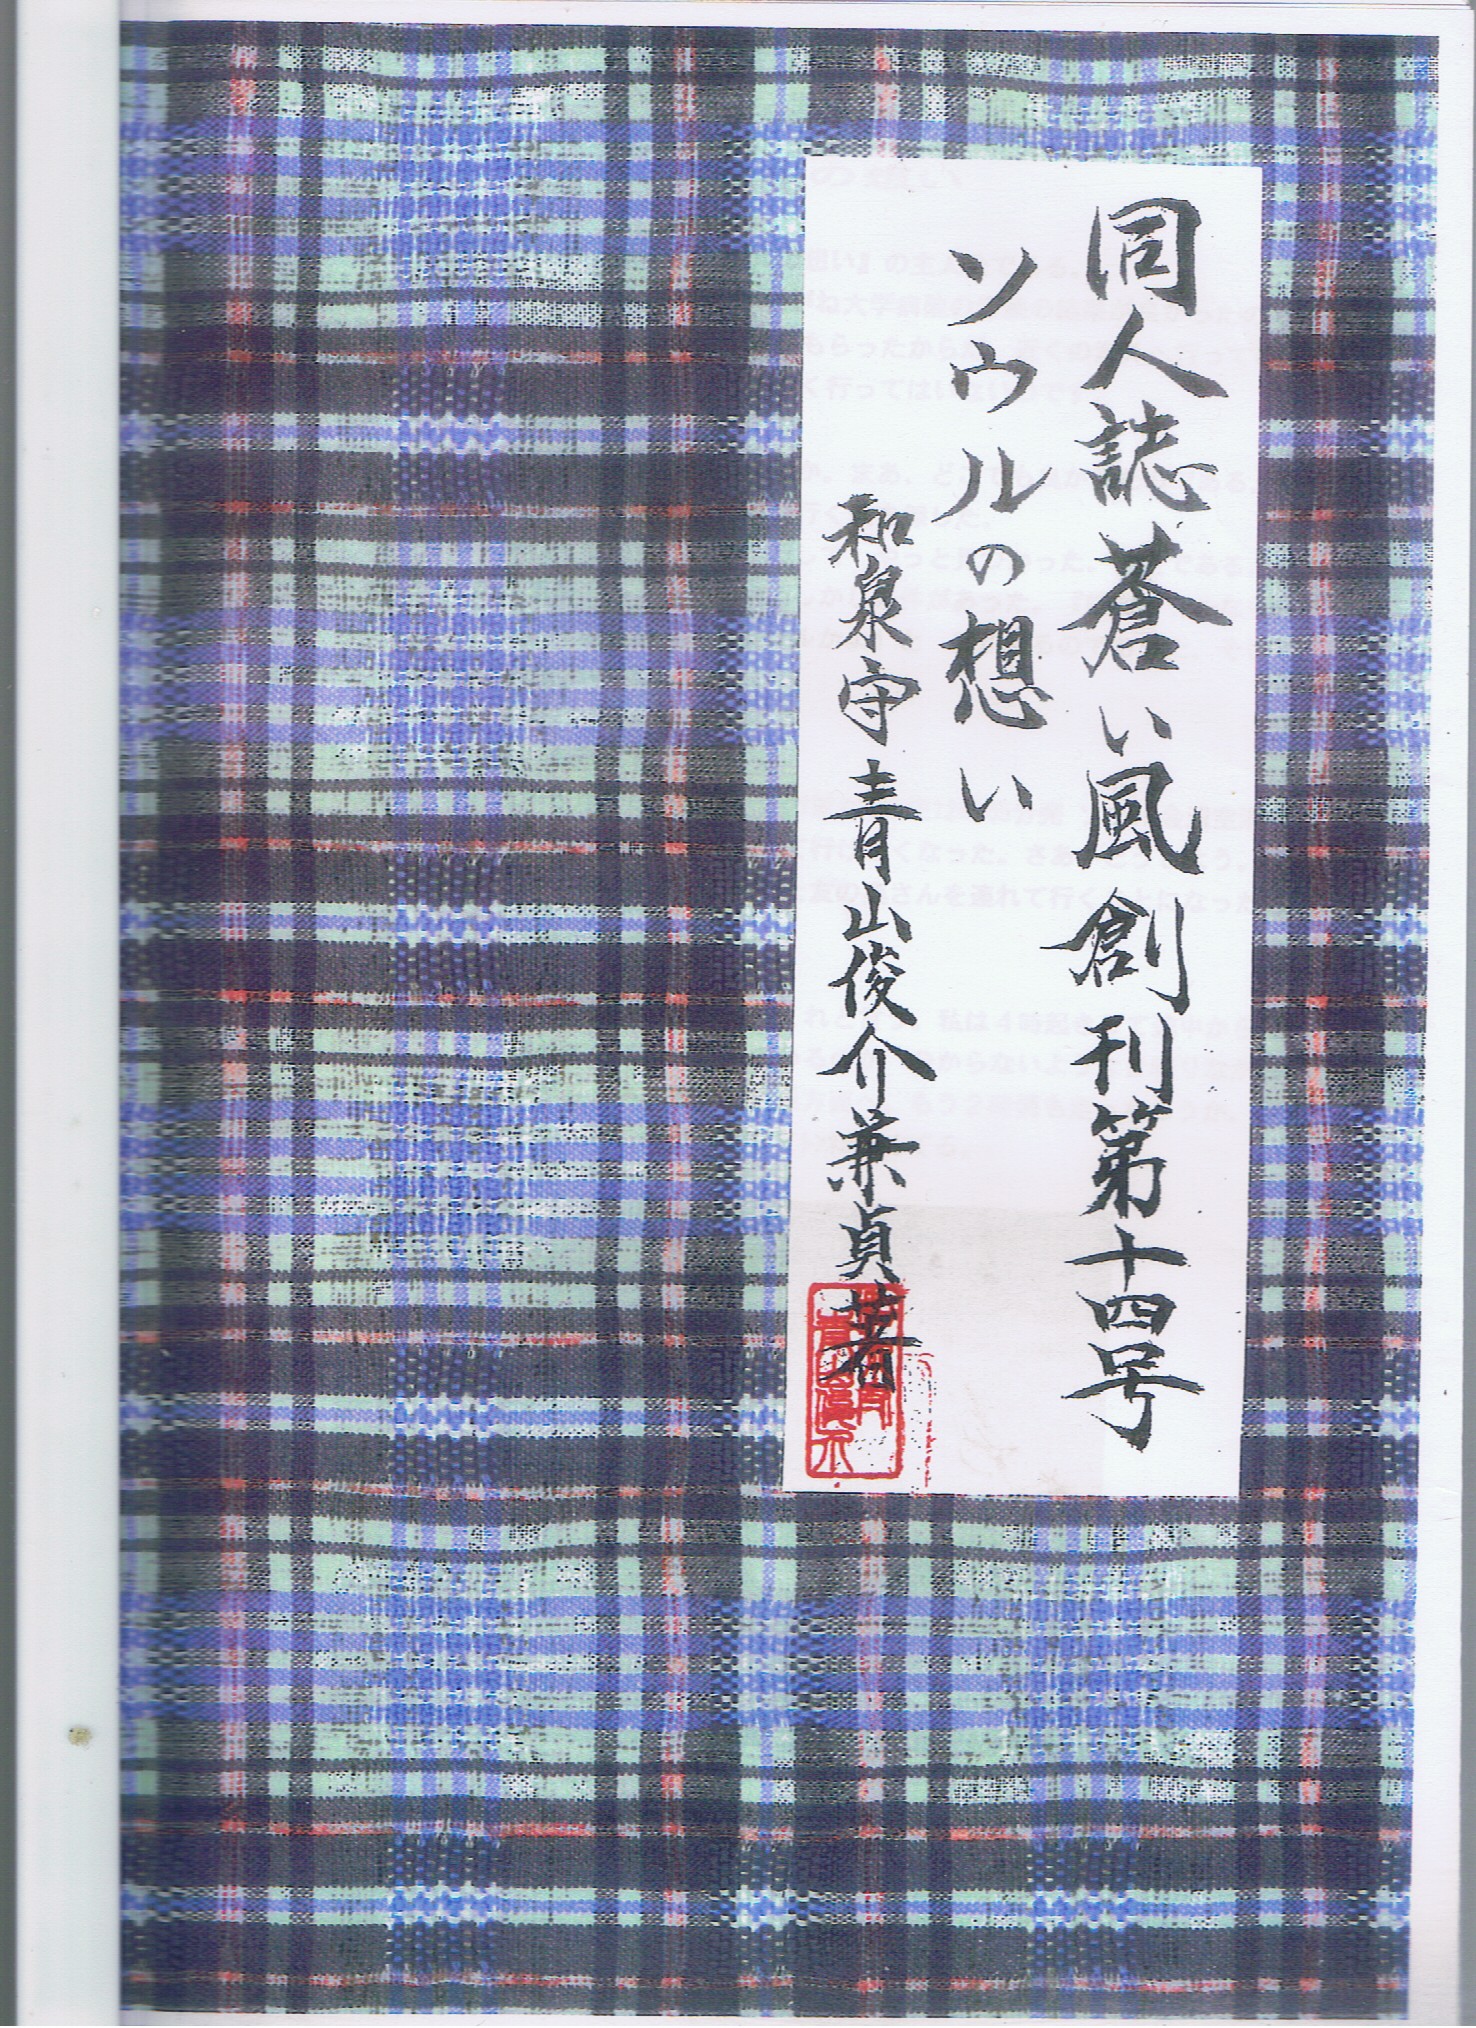 同人誌蒼い風創刊第十四号
ソウルの想い
和泉守青山俊介兼貞著